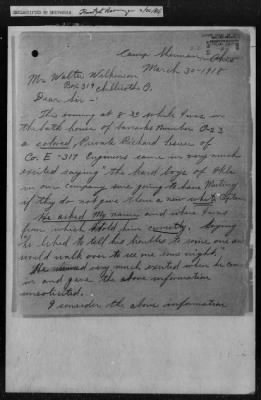 Camp Sherman Ohio
March 30-1918
Mr Walter Wilkinson
Box 319 Chillicothe O.
Dear Sir -
This evening at 8-30 while I was in
the bath house of barracks Number
a colored Private Richard of
Co. E - 317 Engineers came in very much
excited saying "the hard boys of Ohio
in our company are going to have Mutiny
if they do not give them a new white Captain
He asked My name and where I was
from which I told him correctly. Saying
he liked to tell his troubles to some one and
would walk over to see me some night."
He seemed very much excited when he came
in and gave the above information
unsolicited.
I consider the above information